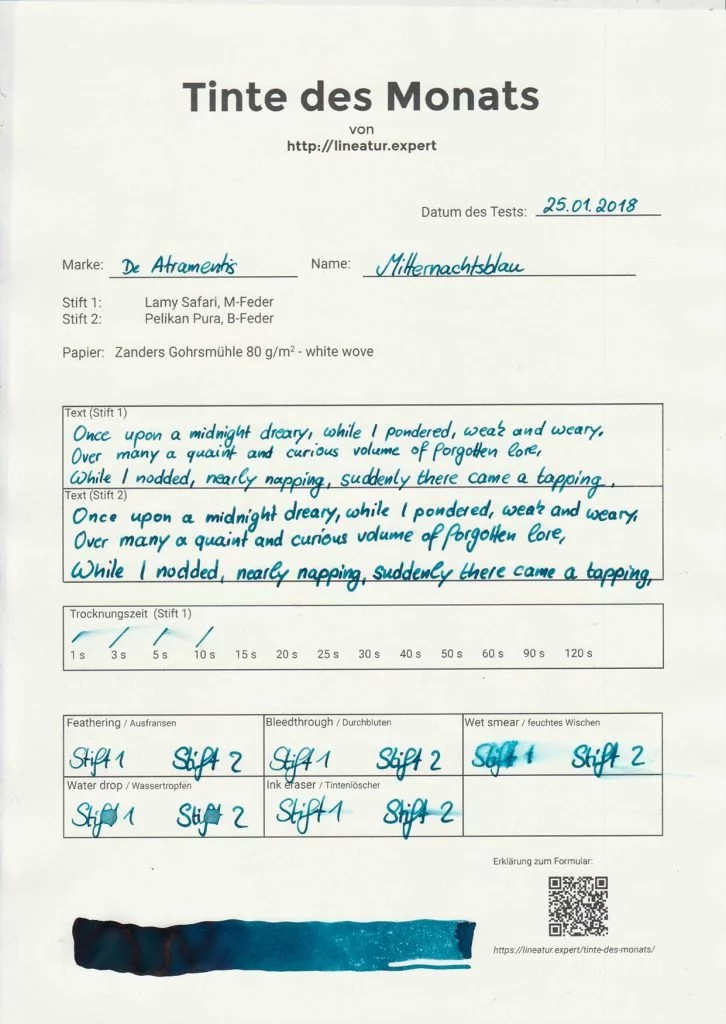 Tinte des Monats
von
http://lineatur.expert
Datum des Tests: 25.01.2018
Marke: De Atramentis Name: Mitternachtsblau
Stift 1: Lamy Safari, M-Feder
Stift 2: Pelikan Pura, B-Feder
Papier: Zanders Gohrsmühle 80 g/m² - white wove
Text (Stift 1)
Once upon a midnight dreary, while I pondered, weak and weary,
Over many a quaint and curious volume of forgotten lore,
While I nodded, nearly napping, suddenly there came a tapping,
Text (Stift 2)
Once upon a midnight dreary, while I pondered, weak and weary,
Over many a quaint and curious volume of forgotten lore,
While I nodded, nearly napping, suddenly there came a tapping,
Trocknungszeit (Stift 1)
1 s 3 s 5 s 10 s 15 s 20 s 25 s 30 s 40 s 50 s 60 s 90 s 120 s
Feathering / Ausfransen Bleedthrough / Durchbluten Wet smear / feuchtes Wischen
Stift 1 Stift 2 Stift 1 Stift 2 Stift 1 Stift 2
Water drop / Wassertropfen Ink eraser / Tintenlöscher
Stift 1 Stift 2 Stift 1 Stift 2
Erklärung zum Formular:
https://lineatur.expert/tinte-des-monats/